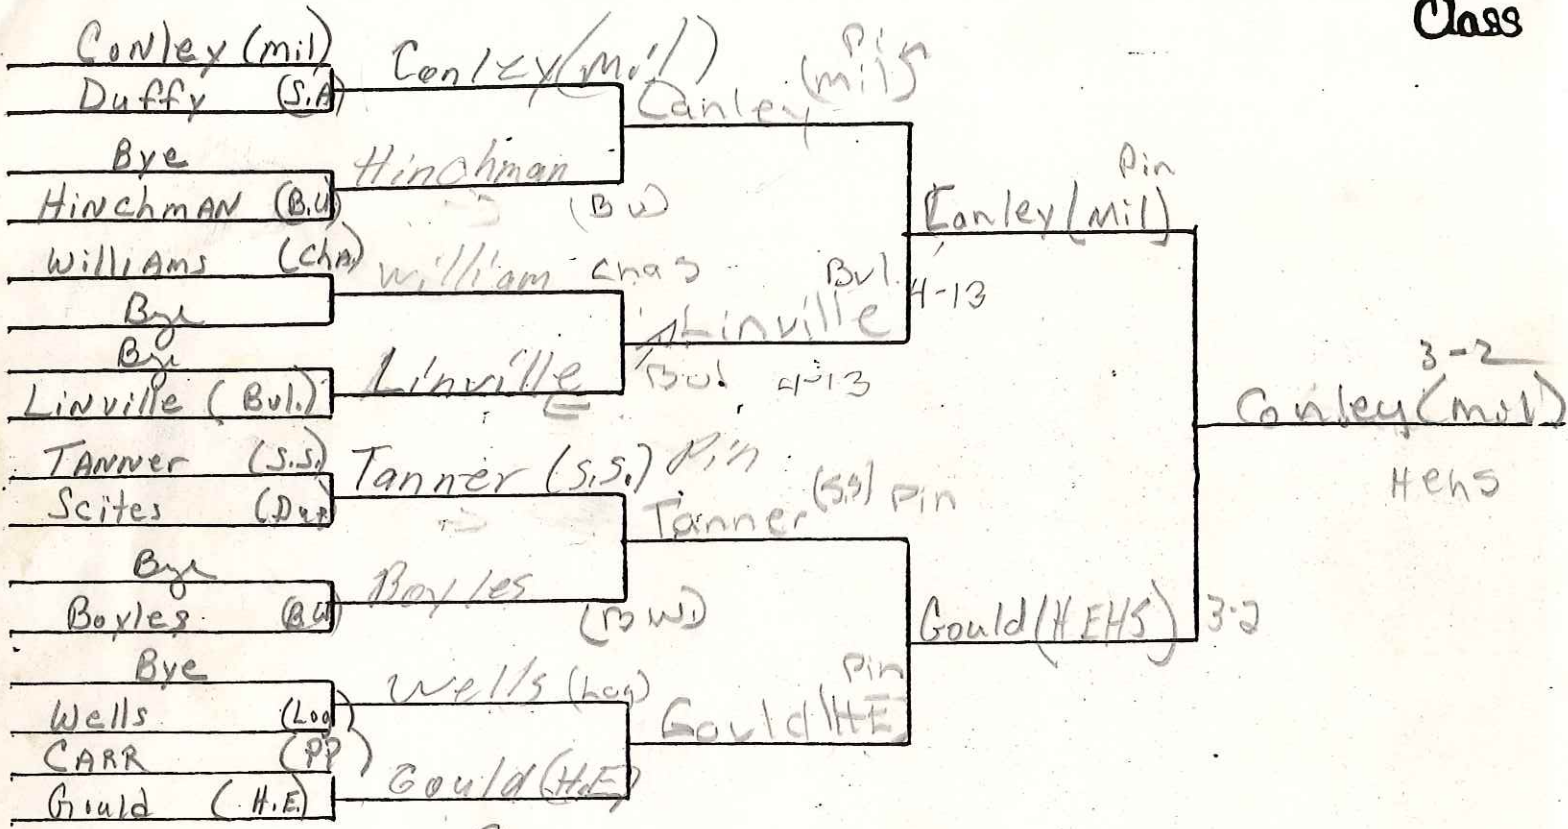 Class
Conley (mil)
Duffy (S.A)
Bye
HiNchmAN (B.U)
Williams (ChA)
Bye
Bye
LiNville (Bul.)
TANNer (S.S.)
Scites (Dup)
Bye
Boyles (BW)
Bye
Wells (Log)
CARR (PP)
Gould (H.E.)
Conley (mil)
Hinchman
(BW)
William Chas
Linville
Tanner (S.S.) Pin
Boyles
(BW)
Wells (Log)
Gould (H.E)
Pin
Canley (mil)
Bul.
Linville
Bul 4-13
Tanner (SS) Pin
Pin
Gould (HE)
Pin
Conley (Mil)
4-13
Gould (HEHS) 3-2
3-2
Conley (mil)
Hehs